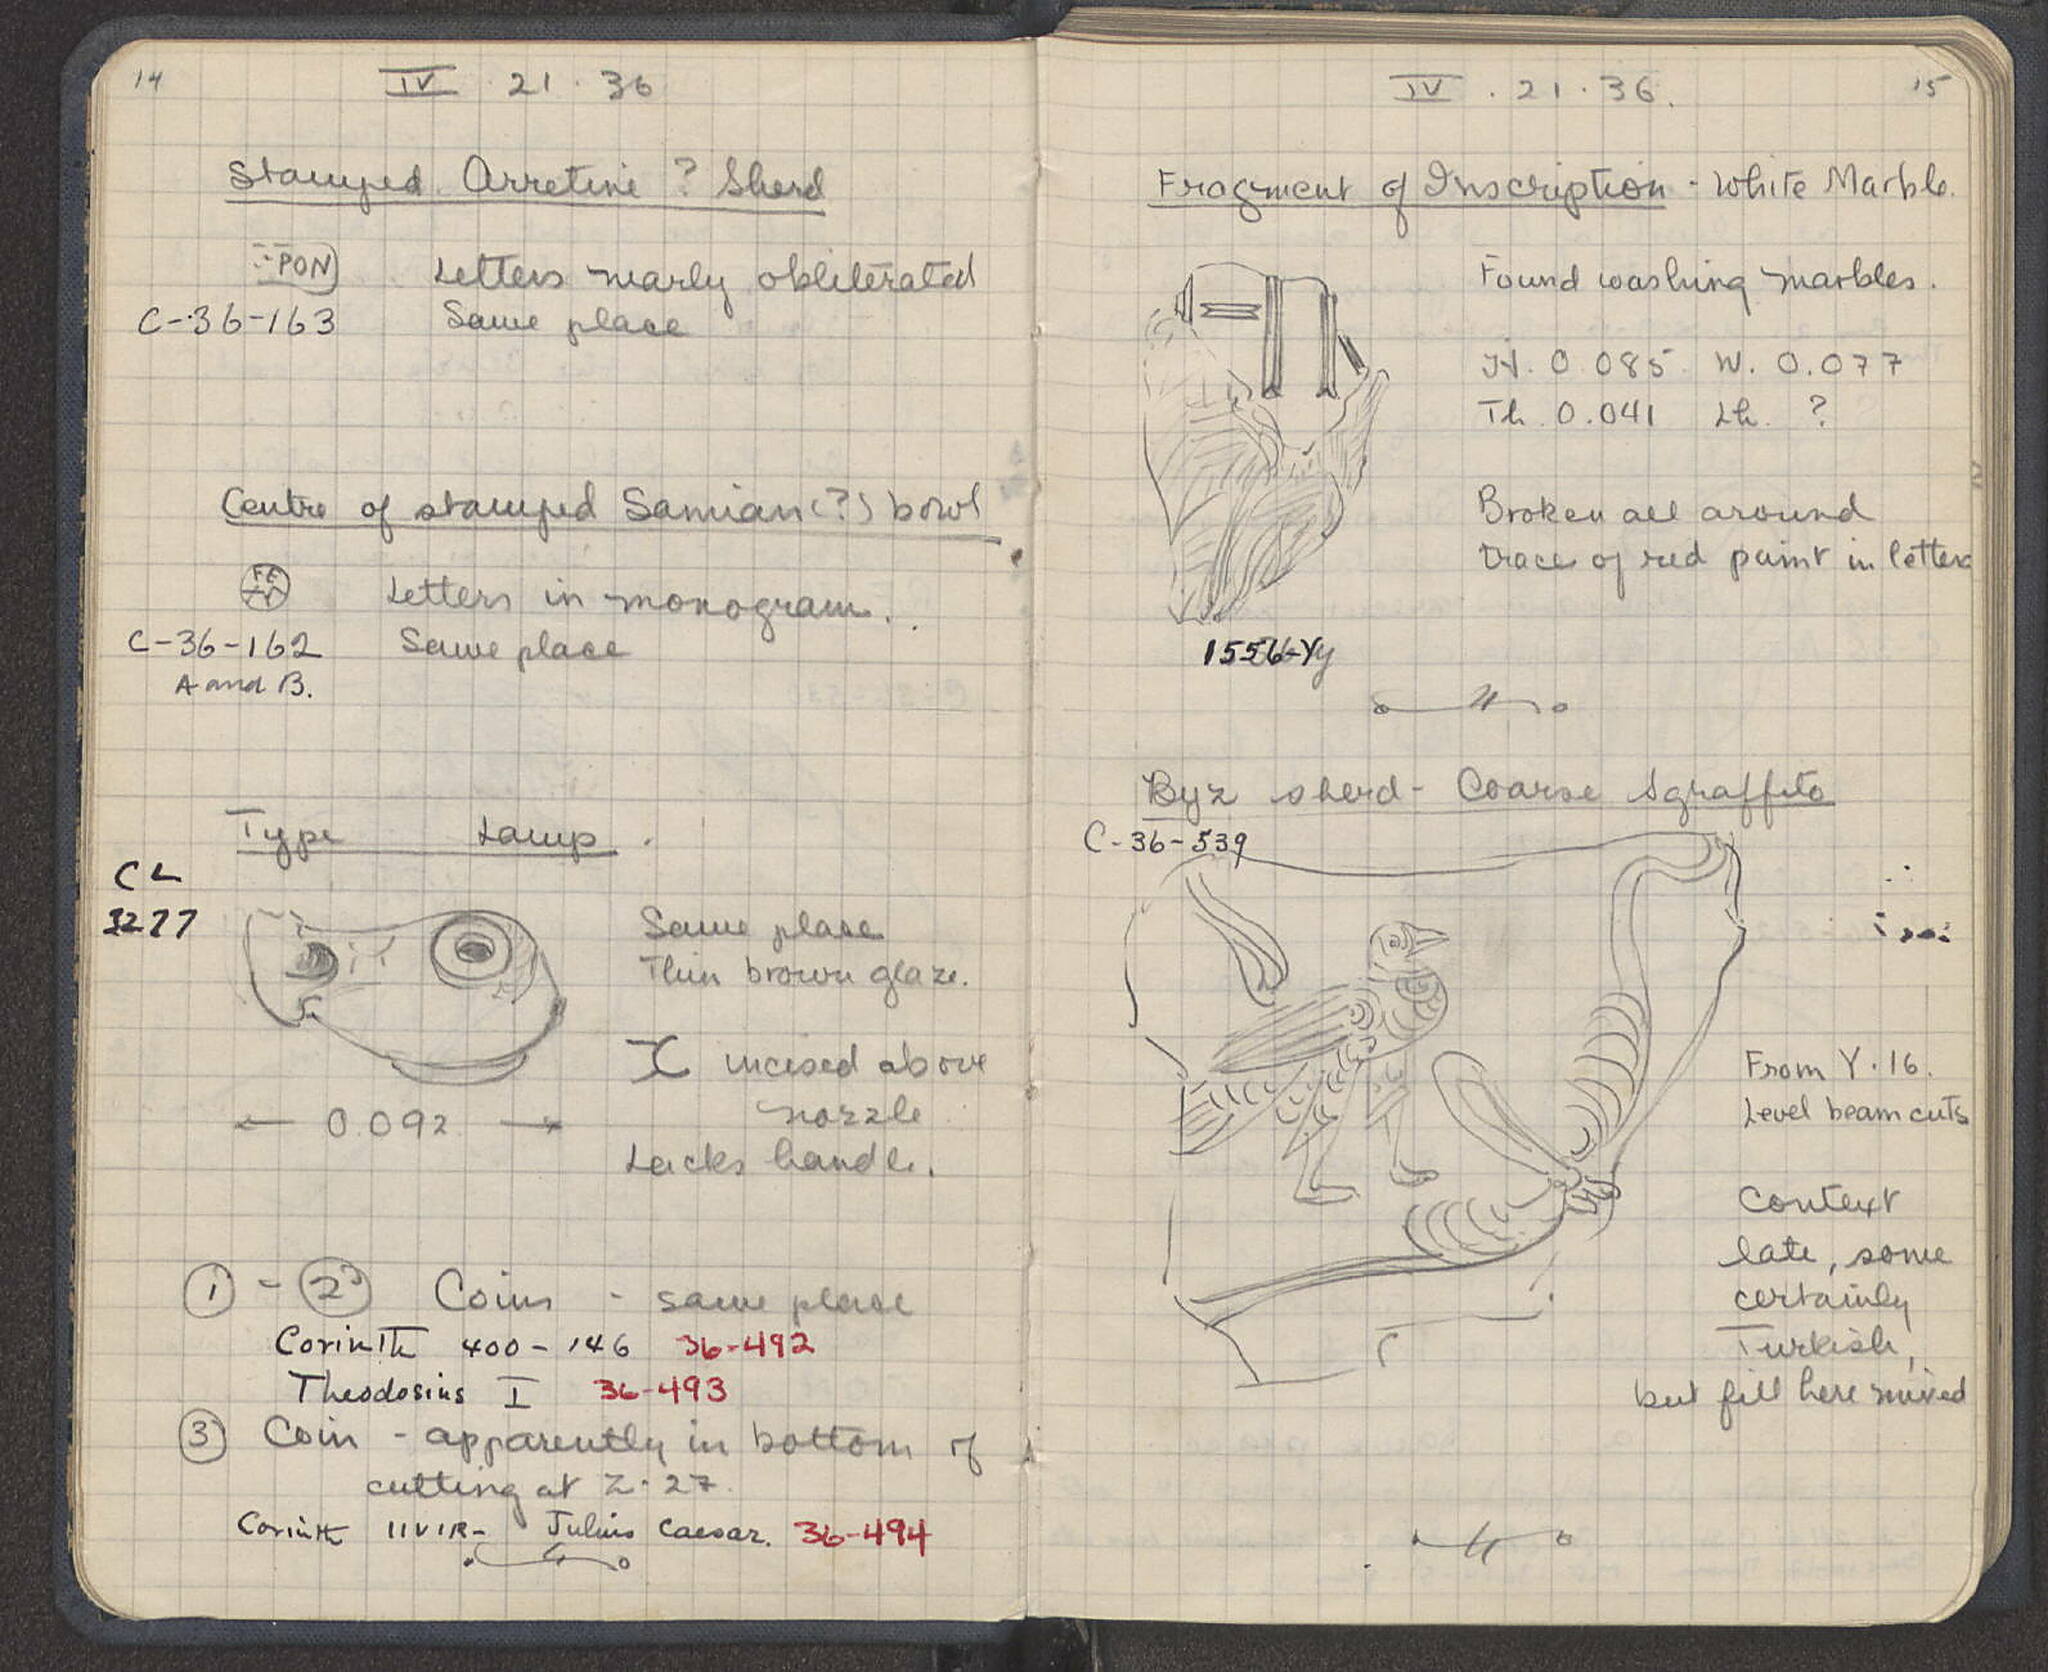 14
IV . 21 . 36
Stamped Arretine ? Sherd
PON
Letters nearly obliterated
C-36-163
Same place
Centre of stamped Samian (?) bowl
FE
Letters in monogram.
C-36-162
Same place
A and B.
Type Lamp.
CL
3277
Same place
Thin brown glaze.
incised above
nozzle
Lacks handle.
0.092
1 - 2 Coins - same place
Corinth 400-146 36-492
Theodosius I 36-493
3 Coin - apparently in bottom of
cutting at Z.27.
Corinth IIVIR- Julius Caesar. 36-494
IV . 21 . 36.
15
Fragment of Inscription - White Marble.
Found washing marbles.
H. 0.085 W. 0.077
Th. 0.041 Lh. ?
Broken all around
trace of red paint in letters
1556-Yy
Byz sherd - Coarse Sgraffito
C-36-539
From Y.16.
Level beam cuts
Context
late, some
certainly
Turkish,
but fill here mixed